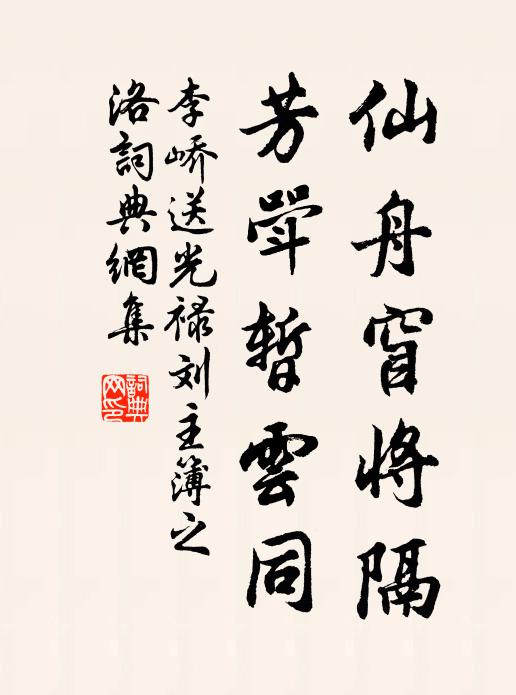 仙舟窅将隔
芳斝暫雲同
李峤送光禄刘主簿之
洛詞典網集
詞典网印